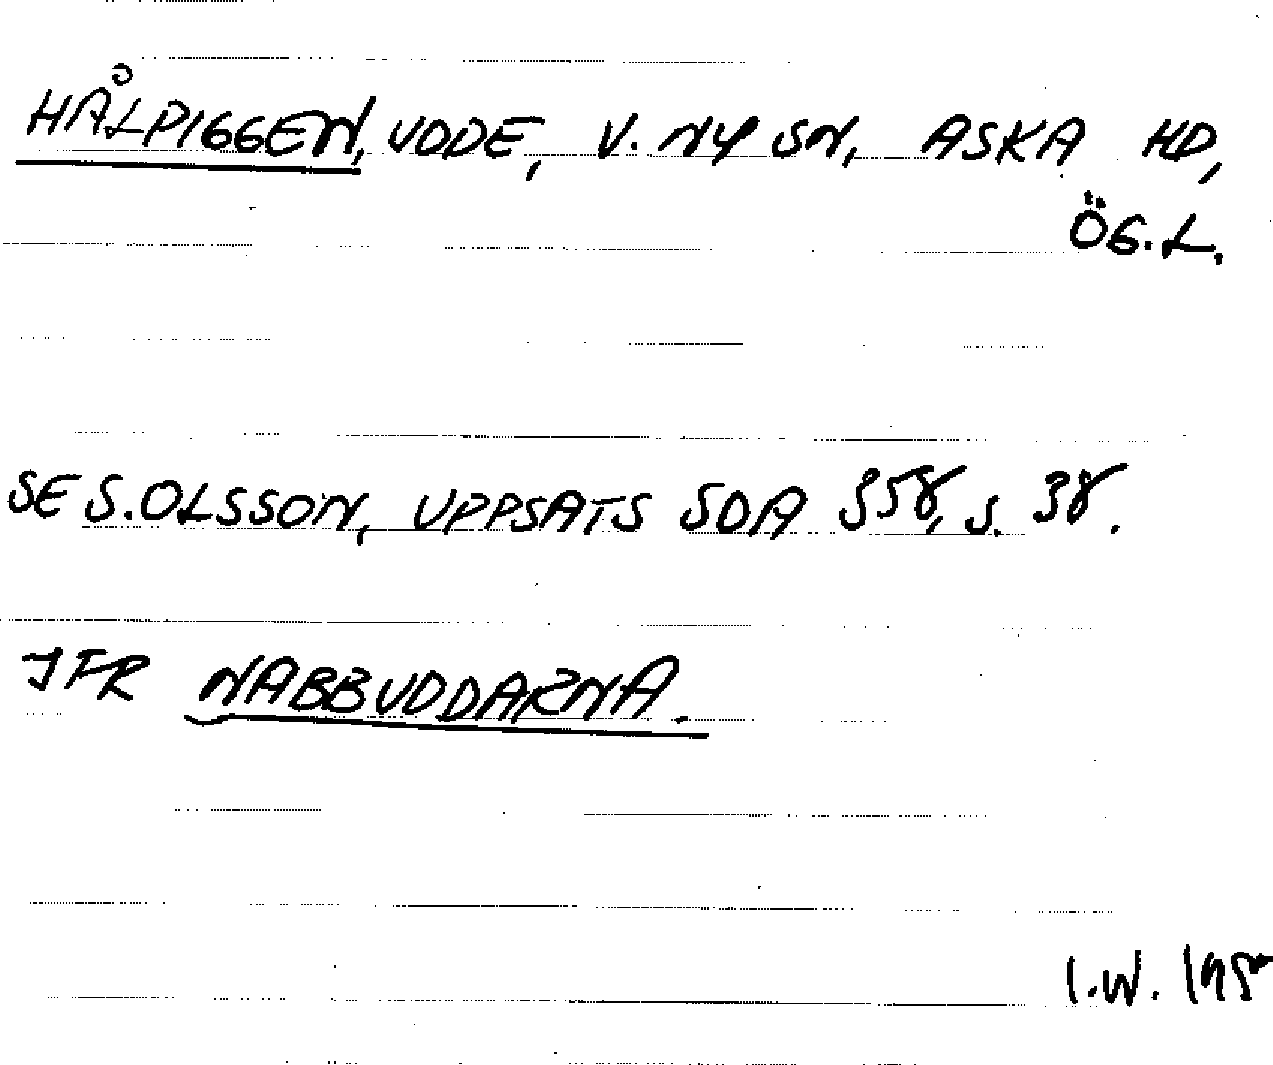 HÅLPIGGEN, UDDE, V. NY SN, ASKA HD,
ÖG. L.
SE S. OLSSON, UPPSATS SOA 358, s. 38.
JFR NABBUDDARNA.
I.W.